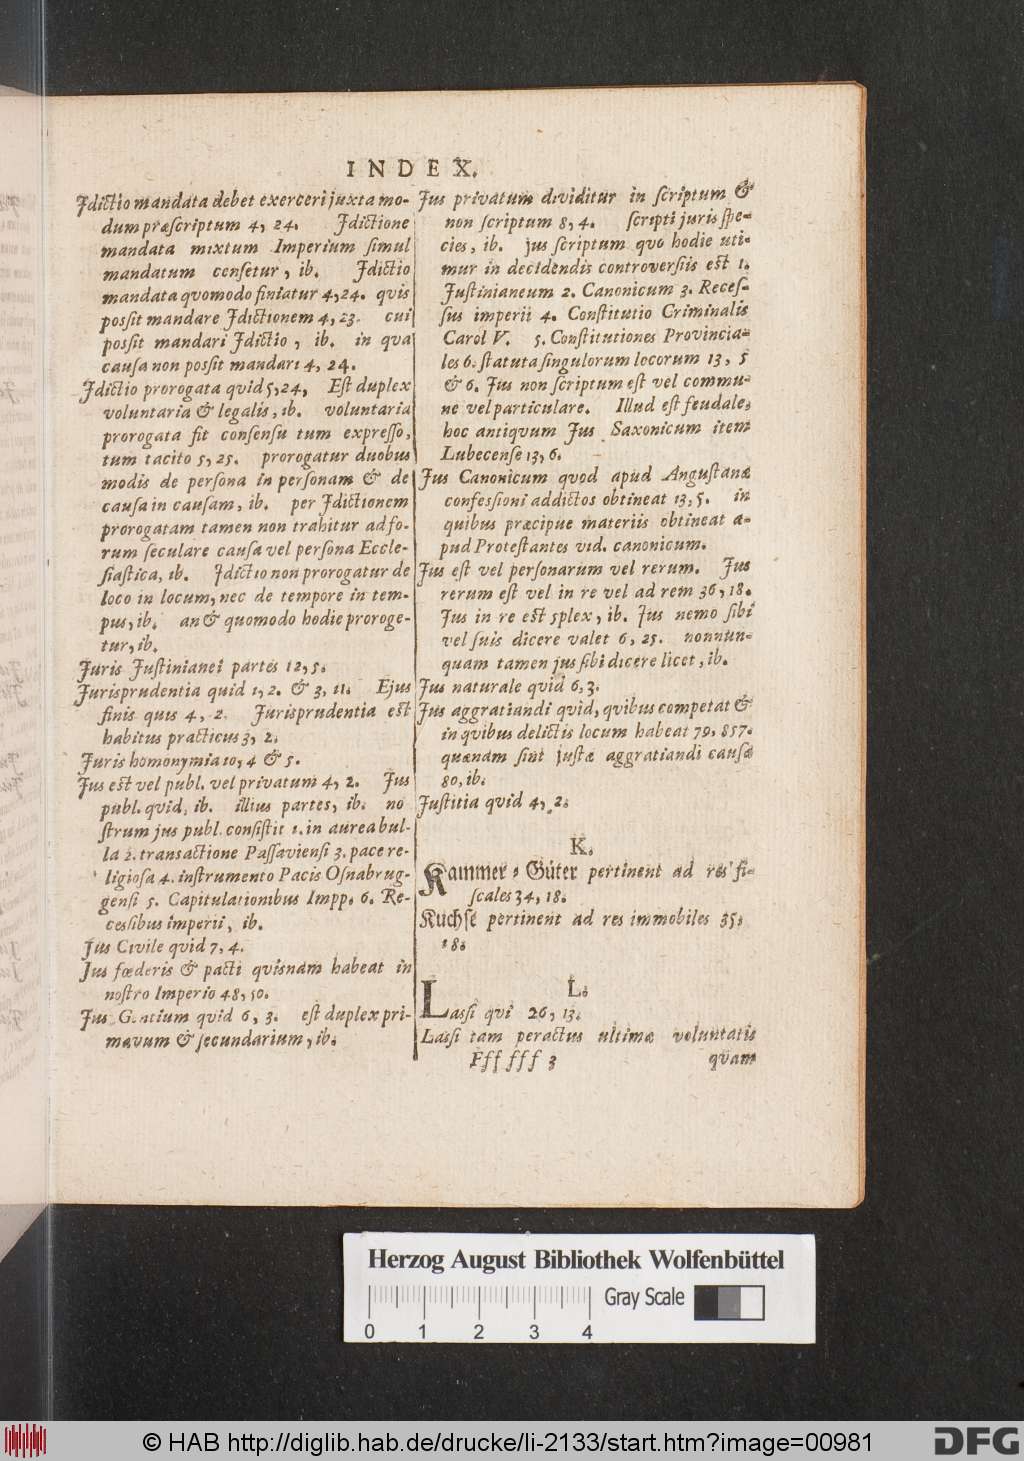 INDEX.
Jdictio mandata debet exerceri juxta mo-
dum præscriptum 4, 24. Jdictione
mandata mixtum Imperium simul
mandatum censetur, ib. Jdictio
mandata qvomodo finiatur 4, 24. qvis
possit mandare Jdictionem 4, 23. cui
possit mandari Jdictio, ib. in qva
causa non possit mandari 4, 24.
Jdictio prorogata quid 5, 24, Est duplex
voluntaria & legalis, ib. voluntaria
prorogata fit consensu tum expresso,
tum tacito 5, 25. prorogatur duobus
modis de persona in personam & de
causa in causam, ib. per Jdictionem
prorogatam tamen non trahitur ad fo-
rum seculare causa vel persona Eccle-
siastica, ib. Jdictio non prorogatur de
loco in locum, nec de tempore in tem-
pus, ib. an & quomodo hodie proroge-
tur, ib.
Juris Justinianei partes 12, 5.
Jurisprudentia quid 1, 2. & 3, 11. Ejus
finis quis 4, 2. Jurisprudentia est
habitus practicus 3, 2.
Juris homonymia 10, 4 & 5.
Jus est vel publ. vel privatum 4, 2. Jus
publ. quid, ib. illius partes, ib. no
strum jus publ. consistit 1. in aurea bul-
la 2. transactione Passaviensi 3. pace re-
ligiosa 4. instrumento Pacis Osnabrug-
gensi 5. Capitulationibus Impp. 6. Re-
cessibus imperii, ib.
Jus Civile qvid 7, 4.
Jus fœderis & pacti qvisnam habeat in
nostro Imperio 48, 50.
Jus Gentium quid 6, 3. est duplex pri-
mævum & secundarium, ib.
Jus privatum dividitur in scriptum &
non scriptum 8, 4. scripti juris spe-
cies, ib. jus scriptum quo hodie uti-
mur in decidendis controversiis est 1.
Justinianeum 2. Canonicum 3. Reces-
sus imperii 4. Constitutio Criminalis
Carol V. 5. Constitutiones Provincia-
les 6. statuta singulorum locorum 13, 5
& 6. Jus non scriptum est vel commu-
ne vel particulare. Illud est feudale,
hoc antiqvum Jus Saxonicum item
Lubecense 13, 6.
Jus Canonicum quod apud Angustanæ
confessioni addictos obtineat 13, 5. in
quibus præcipue materiis obtineat a-
pud Protestantes vid. canonicum.
Jus est vel personarum vel rerum. Jus
rerum est vel in re vel ad rem 36, 18.
Jus in re est 5plex, ib. Jus nemo sibi
vel suis dicere valet 6, 25. nonnun-
quam tamen jus sibi dicere licet, ib.
Jus naturale qvid 6, 3.
Jus aggratiandi qvid, qvibus competat &
in qvibus delictis locum habeat 79, 857.
quænam sint justæ aggratiandi causæ
80, ib.
Justitia qvid 4, 2.
K.
Kammer-Güter pertinent ad res fi-
scales 34, 18.
Kuchse pertinent ad res immobiles 35,
18.
L.
Lassi qvi 26, 13.
Lassi tam peractus ultimæ voluntatis
Fff fff 3 qvam
Herzog August Bibliothek Wolfenbüttel
Gray Scale
0 1 2 3 4
© HAB http://diglib.hab.de/drucke/li-2133/start.htm?image=00981
DFG